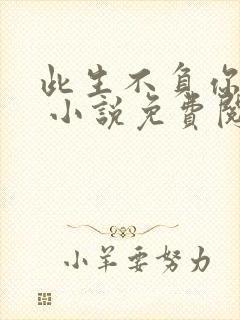 此生不負你
小說免費閱
小羊要努力